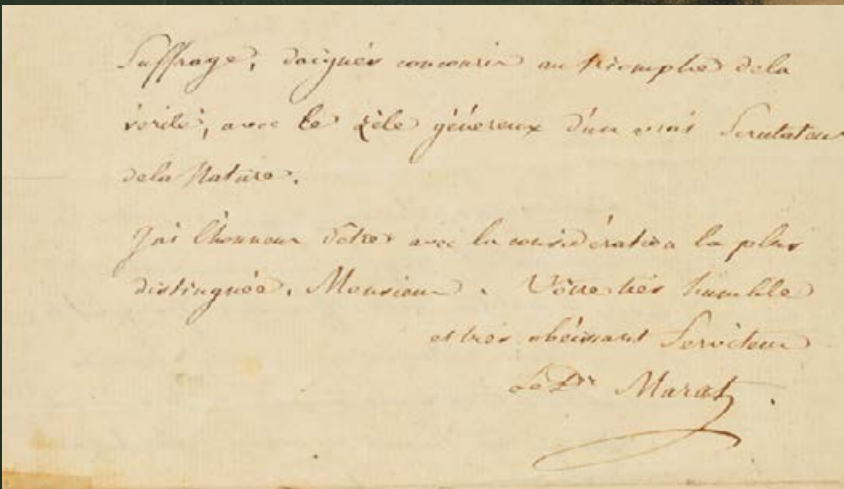 Suffrage, daignés concourir au triomphe de la
vérité, avec le zèle généreux d'un vrai Scrutateur
de la Nature.
J'ai l'honneur d'être avec la considération la plus
distinguée, Monsieur. Vôtre très humble
et très obéissant Serviteur
Le Dr Marat.